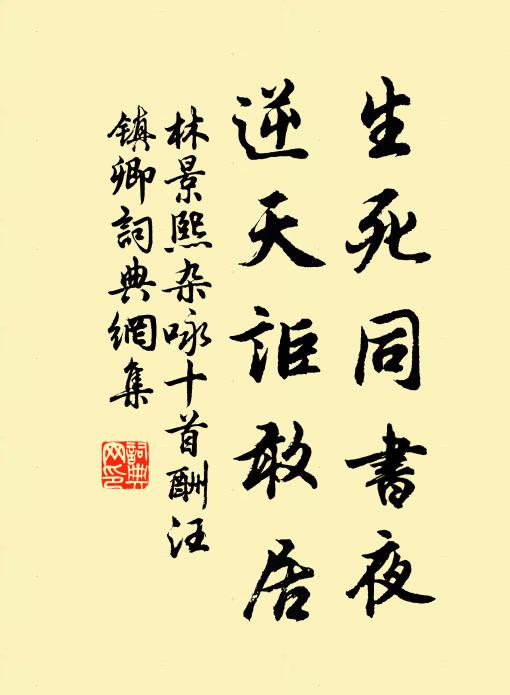 生死同書夜
逆天詎敢居
林景熙杂咏十首酬汪
镇卿詞典網集
詞典
网印